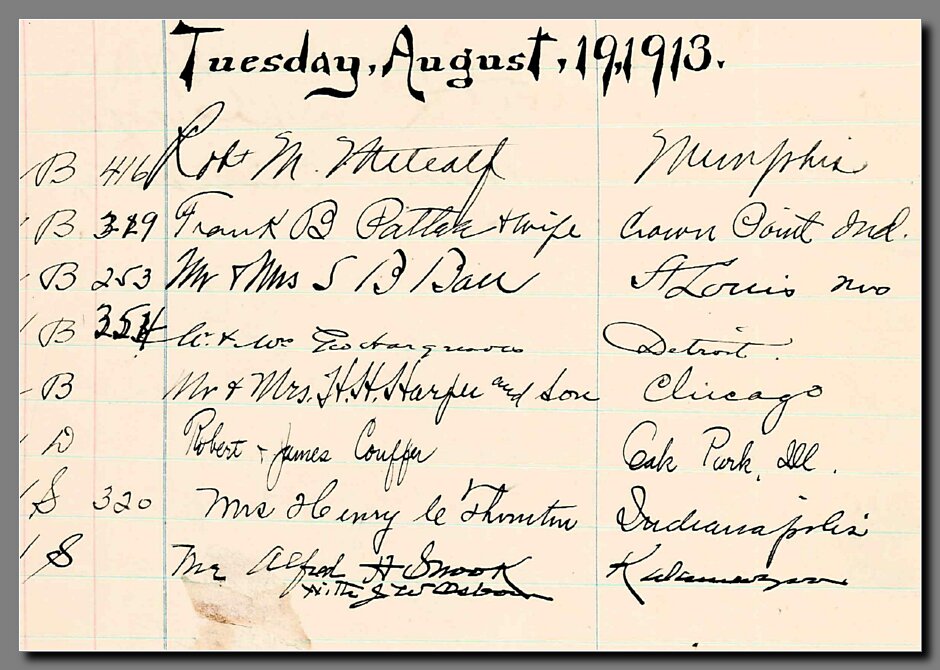 Tuesday, August, 19, 1913.
B 416 Robt M. Metcalf Memphis
B 329 Frank B & wife Crown Point Ind.
B 253 Mr & Mrs S B Ball St Louis Mo
B 354 Mr. & Mrs Geo Hargreaves Detroit.
B Mr & Mrs. H. H. Harper and Son Chicago
D Robert & James Couffer Oak Park, Ill.
S 320 Mrs Henry C Thornton Indianapolis
S Mr Alfred H Snook Kalamazoo
With J W Osborn